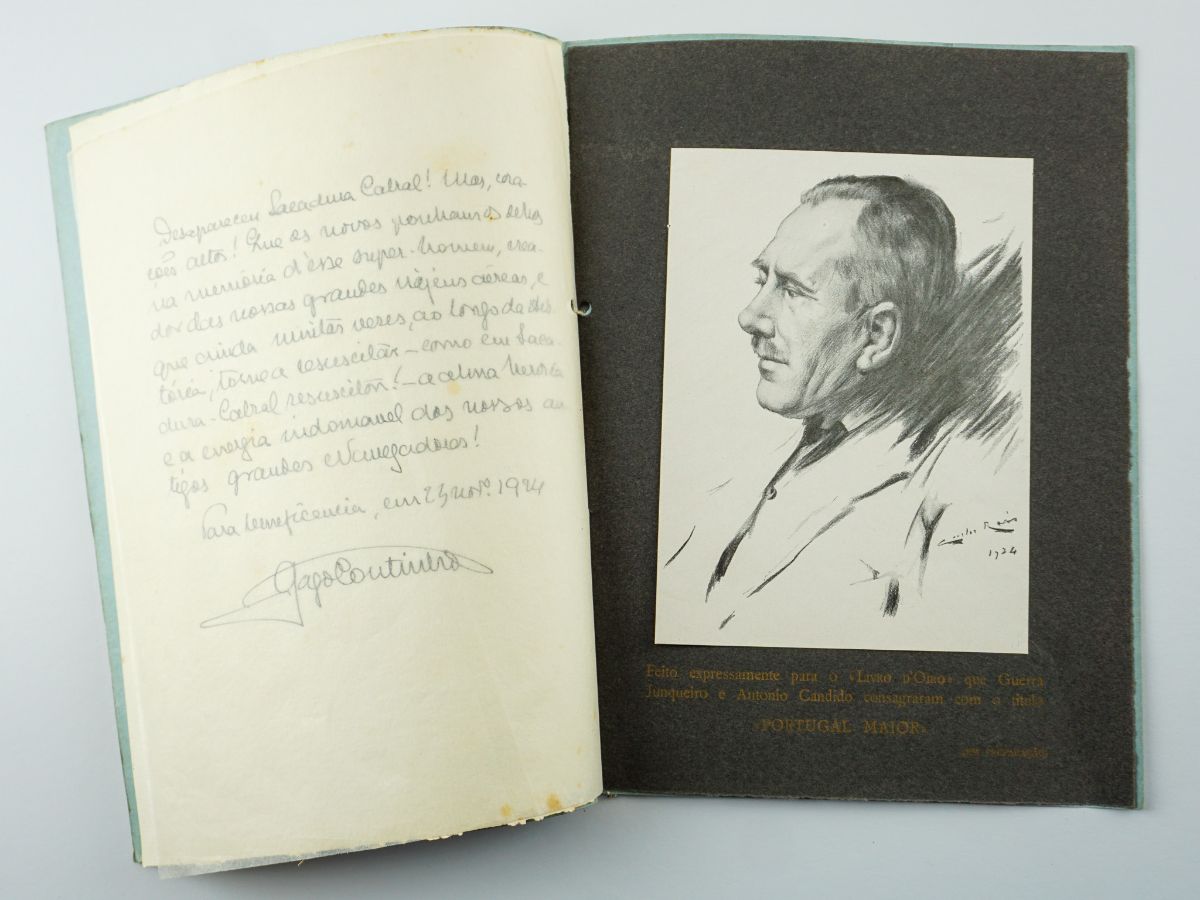 Desapareceu Sacadura Cabral! Mas, cora-
ções altos! Que os novos ponham os olhos
na memória d'esse super-homem, crea-
dor das nossas grandes viajens aéreas, e
que ainda muitas vezes, ao longo da His-
tória, torne a resuscitar - como em Saca-
dura-Cabral resuscitou! - a alma heroica
e a energia indomavel dos nossos an-
tigos grandes Navegadores!
Para beneficencia, em 25 novº. 1924
Gago Coutinho
Carlos Reis
1924
Feito expressamente para o «Livro d'Oiro» que Guerra
Junqueiro e Antonio Candido consagraram com o titulo
«PORTUGAL MAIOR»
(EM PREPARAÇÃO)